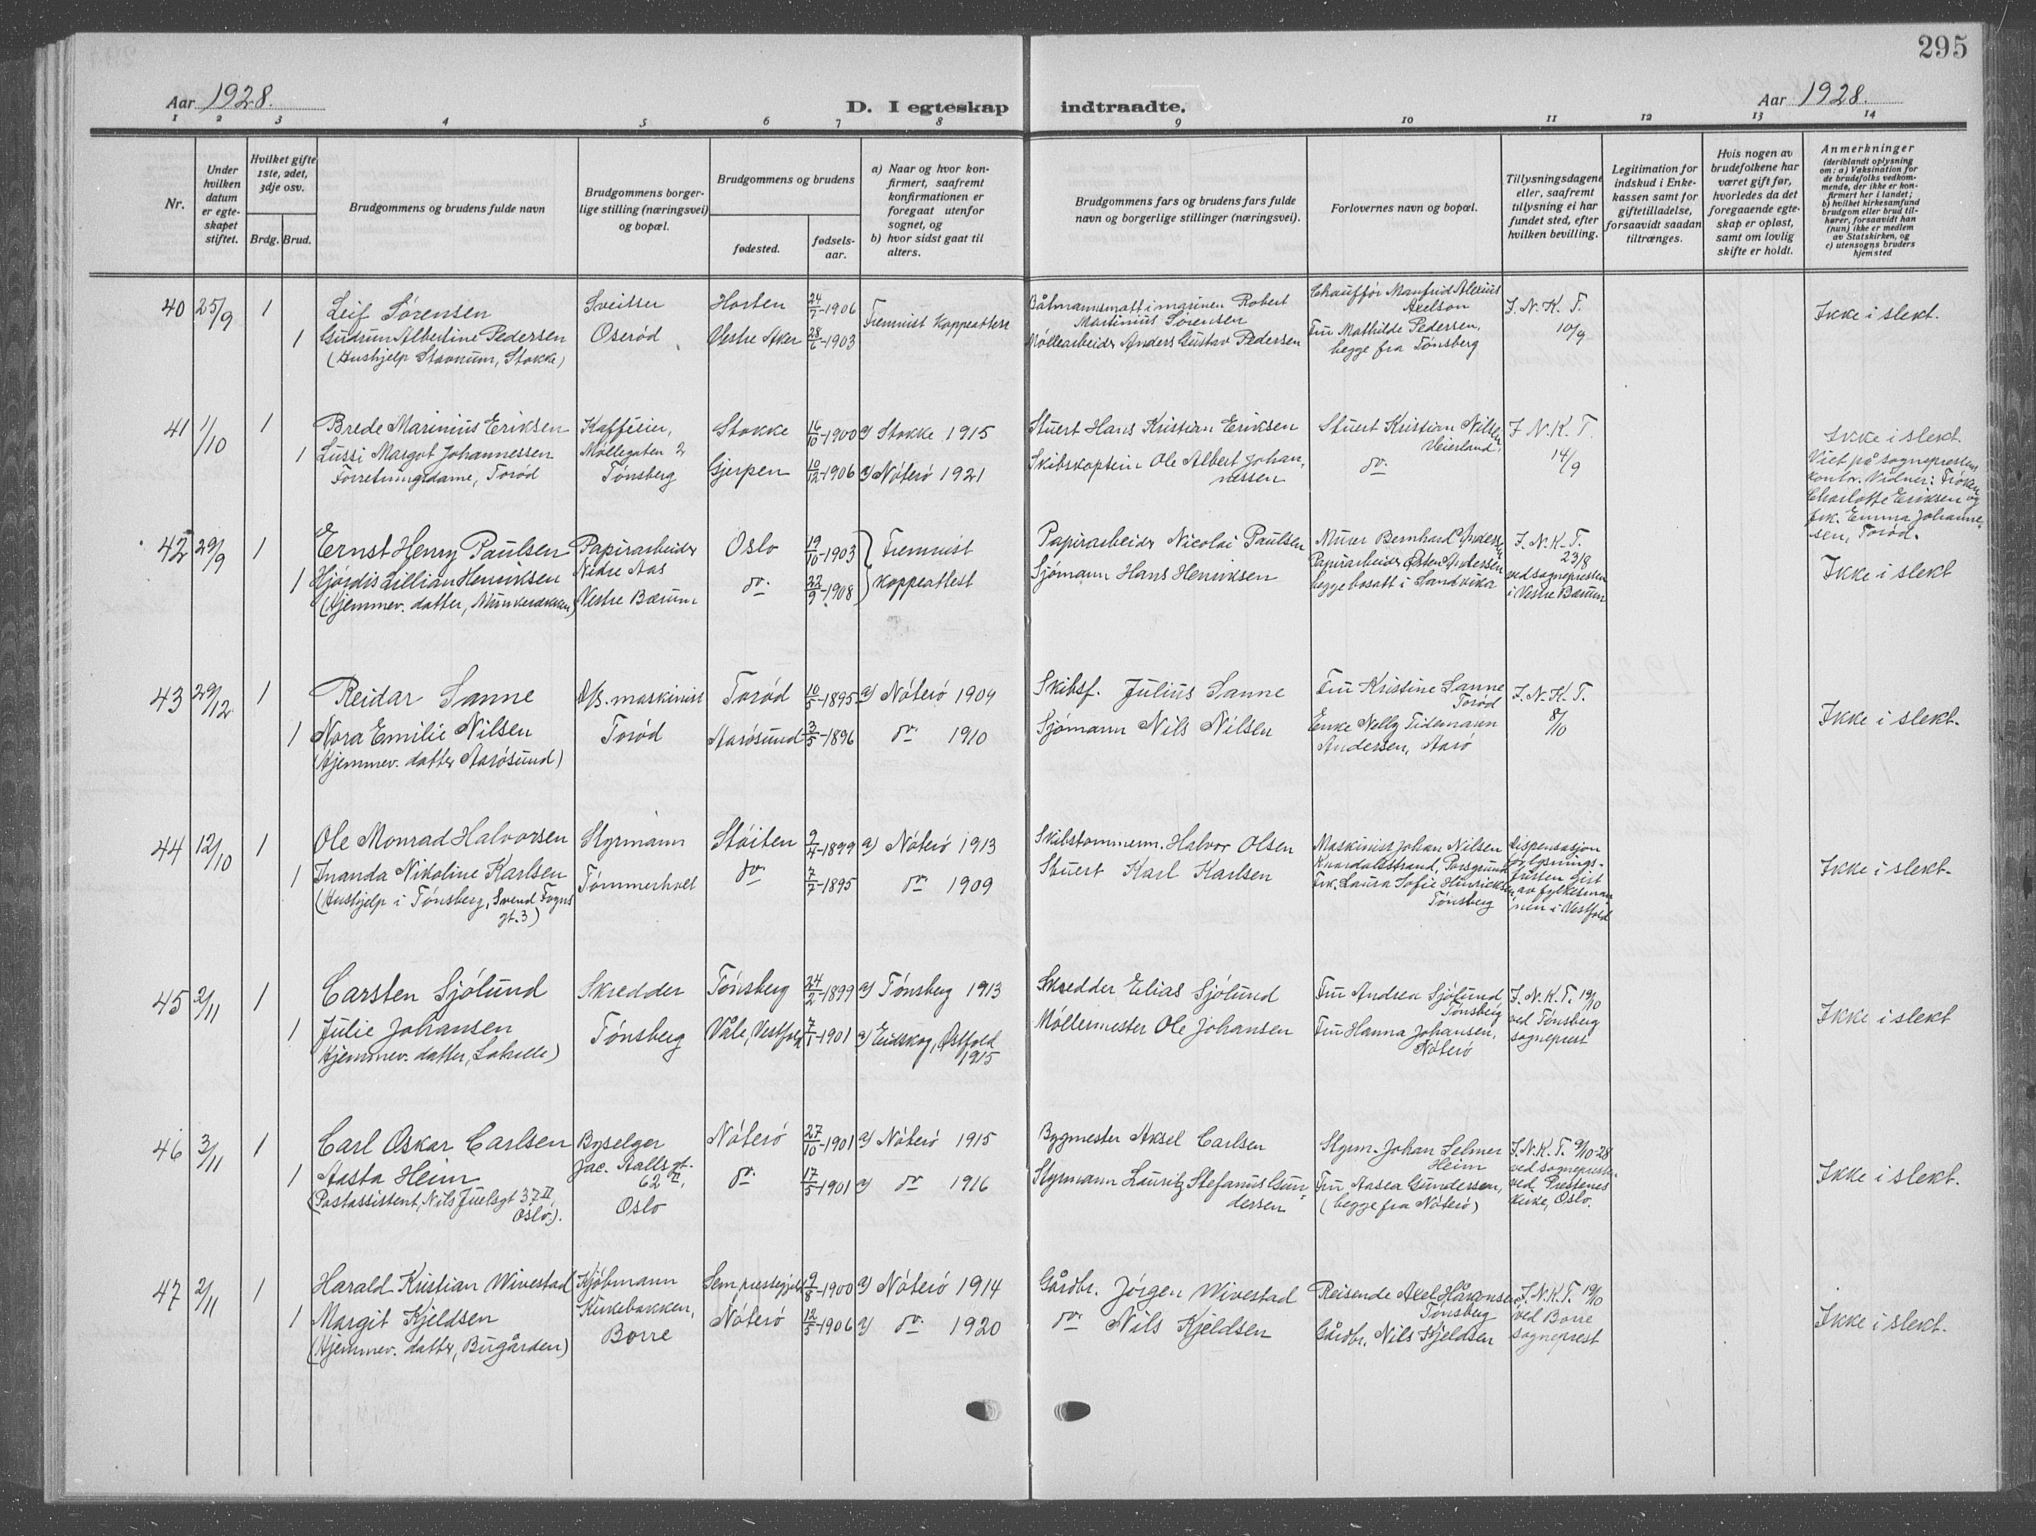 295
Aar 1928.
D. I egteskap indtraadte.
Aar 1928.
1 2 3 4 5 6 7 8 9 10 11 12 13 14
Nr.
Under hvilken datum er egteskapet stiftet.
Hvilket gifte 1ste, 2det, 3dje osv.
Brdg. Brud.
Brudgommens og brudens fulde navn
Brudgommens borgerlige stilling (næringsvei) og bopæl.
Brudgommens og brudens
fødested.
fødselsaar.
a) Naar og hvor konfirmert, saafremt konfirmationen er foregaat utenfor sognet, og
b) hvor sidst gaat til alters.
Brudgommens fars og brudens fars fulde navn og borgerlige stillinger (næringsvei).
Forlovernes navn og bopæl.
Tillysningsdagene eller, saafremt tillysning ei har fundet sted, efter hvilken bevilling.
Legitimation for indskud i Enkekassen samt for giftetilladelse, forsaavidt saadan tiltrænges.
Hvis nogen av brudefolkene har været gift før, hvorledes da det foregaaende egteskap er opløst, samt om lovlig skifte er holdt.
Anmerkninger
(deriblandt oplysning om: a) Vaksination for de brudefolks vedkommende, der ikke er konfirmert her i landet; b) hvilket kirkesamfund brudgom eller brud tilhører, forsaavidt han (hun) ikke er medlem av Statskirken, og c) utensogns bruders hjemsted
40 25/9 1 Leif Sørensen
Sveitser
Oserød
Horten 24/7-1906
Fremvist koppeattest
Båtsmannsmatt i marinen Robert
Martinius Sørensen
Chauffør Manfrid Alexius
Axelson
I. N. K. T.
10/9
Ikke i slekt.
1 Gudrun Albertine Pedersen
(Hushjelp Stavnum, Stokke)
Vestre Aker 28/6-1903
Møllearbeider Anders Gustav Pedersen
Fru Mathilde Pedersen,
begge fra Tønsberg
41 1/10 1 Brede Marinius Eriksen
Møllegaten 2
Tønsberg
Stokke 16/10-1900 a) Stokke 1915
Stuert Hans Kristian Eriksen
Stuert Kristian Nilsen
Veierland
I. N. K. T.
14/9
Ikke i slekt.
Viet på sogneprestens
kontor. Vidner: Frøken
Charlotte Eriksen og
frk. Emma Johannessen, Torød.
1 Lussi Margot Johannessen
Forretningsdame, Torød
Gjerpen 10/12-1906 a) Nøterø 1921
Skibskaptein Ole Albert Johannessen
do.
42 29/9 1 Ernst Henry Paulsen
Papirarbeider
Nedre Aas
Vestre Bærum
Oslo 19/10-1903
Fremvist
koppeattest
Papirarbeider Nicolai Paulsen
Murer Bernhard Andersen
Papirarbeider Østen Andersen
begge bosatt i Sandvika
I. N. K. T.
23/8
ved sognepresten
i Vestre Bærum
Ikke i slekt
1 Hjørdis Lillian Henriksen
(Hjemmev. datter, Munkerekken)
do. 22/9-1908
Sjømann Hans Henriksen
43 29/12 1 Reidar Sanne
D/S. maskinist
Torød
Torød 10/5-1895 a) Nøterø 1909
Skibsf. Julius Sanne
Fru Kristine Sanne
Torød
I. N. K. T.
8/10
Ikke i slekt.
1 Nora Emilie Nilsen
(Hjemmev. datter Aarøsund)
Aarøsund 3/5-1896 do. 1910
Sjømann Nils Nilsen
Enke Nelly Tidemann
Andersen, Aarø
44 12/10 1 Ole Monrad Halvorsen
Styrmann
Tømmerholt
Støiten 9/4-1899 a) Nøterø 1913
Skibstømmerm. Halvor Olsen
Maskinist Johan Nilsen
Knardalsstrand, Porsgrund
Dispensasjon
for lysnings-
fristen gist
av fylkesmannen i Vestfold
Ikke i slekt.
1 Inanda Nikoline Karlsen
(Hushjelp i Tønsberg, Svend Foyns
gt. 3)
do. 7/2-1895 do. 1909
Stuert Karl Karlsen
Frk. Laura Sofie Hinrichsen
Tønsberg
45 2/11 1 Carsten Sjølund
Skredder
Tønsberg
Tønsberg 24/2-1899 a) Tønsberg 1913
Skredder Elias Sjølund
Fru Andrea Sjølund
Tønsberg
I. N. K. T. 19/10
ved Tønsberg
sogneprest
Ikke i slekt
1 Julie Johansen
Hjemmev. datter,
Våle, Vestfold 7/1-1901 a) Eidskog, Østfold
1915
Møllermester Ole Johansen
Fru Hanna Johansen,
Nøterø
46 3/11 1 Carl Oskar Carlsen
Byselger
Jac. Aalls gt.
62 II,
Oslo
Nøterø 27/10-1901 a) Nøterø 1915
Bygmester Aksel Carlsen
Styrm. Johan Selmer
Heim
I. N. K. T. 9/10-28
ved sogneprest
ved Prestenes
kirke, Oslo.
Ikke i slekt.
1 Aasta Heim
(Postassistent, Nils Juelsgt 37 II
Oslo).
do. 17/5-1901 a) do. 1916
Styrmann Lauritz Stefanus Gundersen
Fru Aasea Gundersen,
(begge fra Nøterø)
47 2/11 1 Harald Kristian Wivestad
Kjøbmann
Kirkebakken,
Borre
Sem prestegjeld 9/8-1900 a) Nøterø 1914
Gårdbr. Jørgen Wivestad
Reisende Axel Håkonsen
Tønsberg
I. N. K. T. 19/10
ved Borre
sogneprest
Ikke i slekt.
1 Margit Kjeldsen
(Hjemmev. datter, Bugården)
Nøterø 12/5-1906 a) do. 1920
do. Nils Kjeldsen
Gårdbr. Nils Kjeldsen